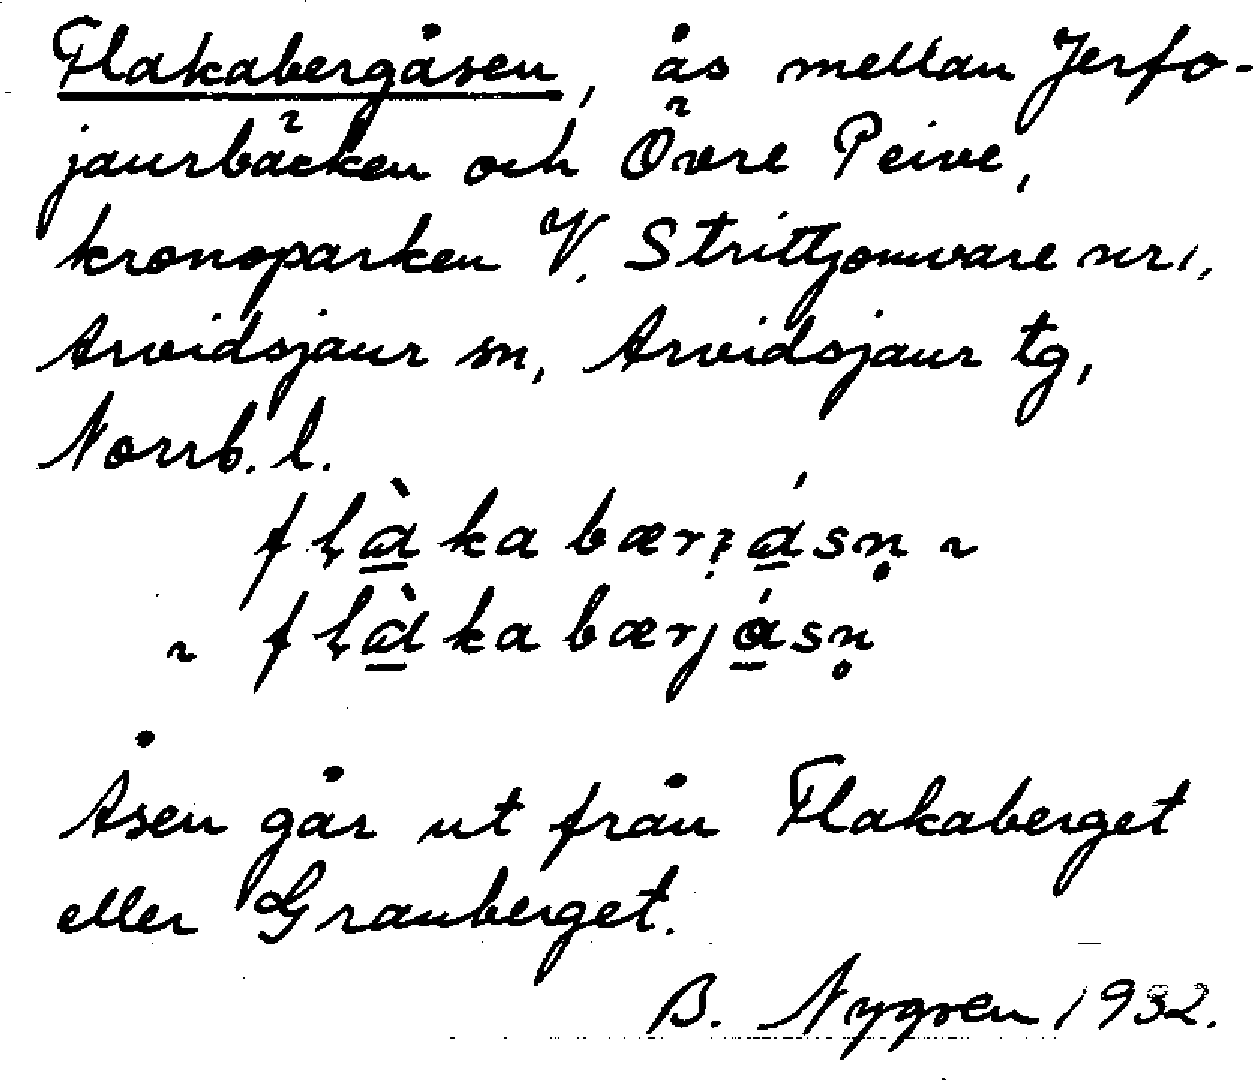 Flakabergåsen, ås mellan Jerfo-
jaurbäcken och Övre Peive,
kronoparken V. Strittjomvare nr 1,
Arvidsjaur sn, Arvidsjaur tg,
Norrb. l.
Åsen går ut från Flakaberget
eller Granberget.
B. Nygren 1932.